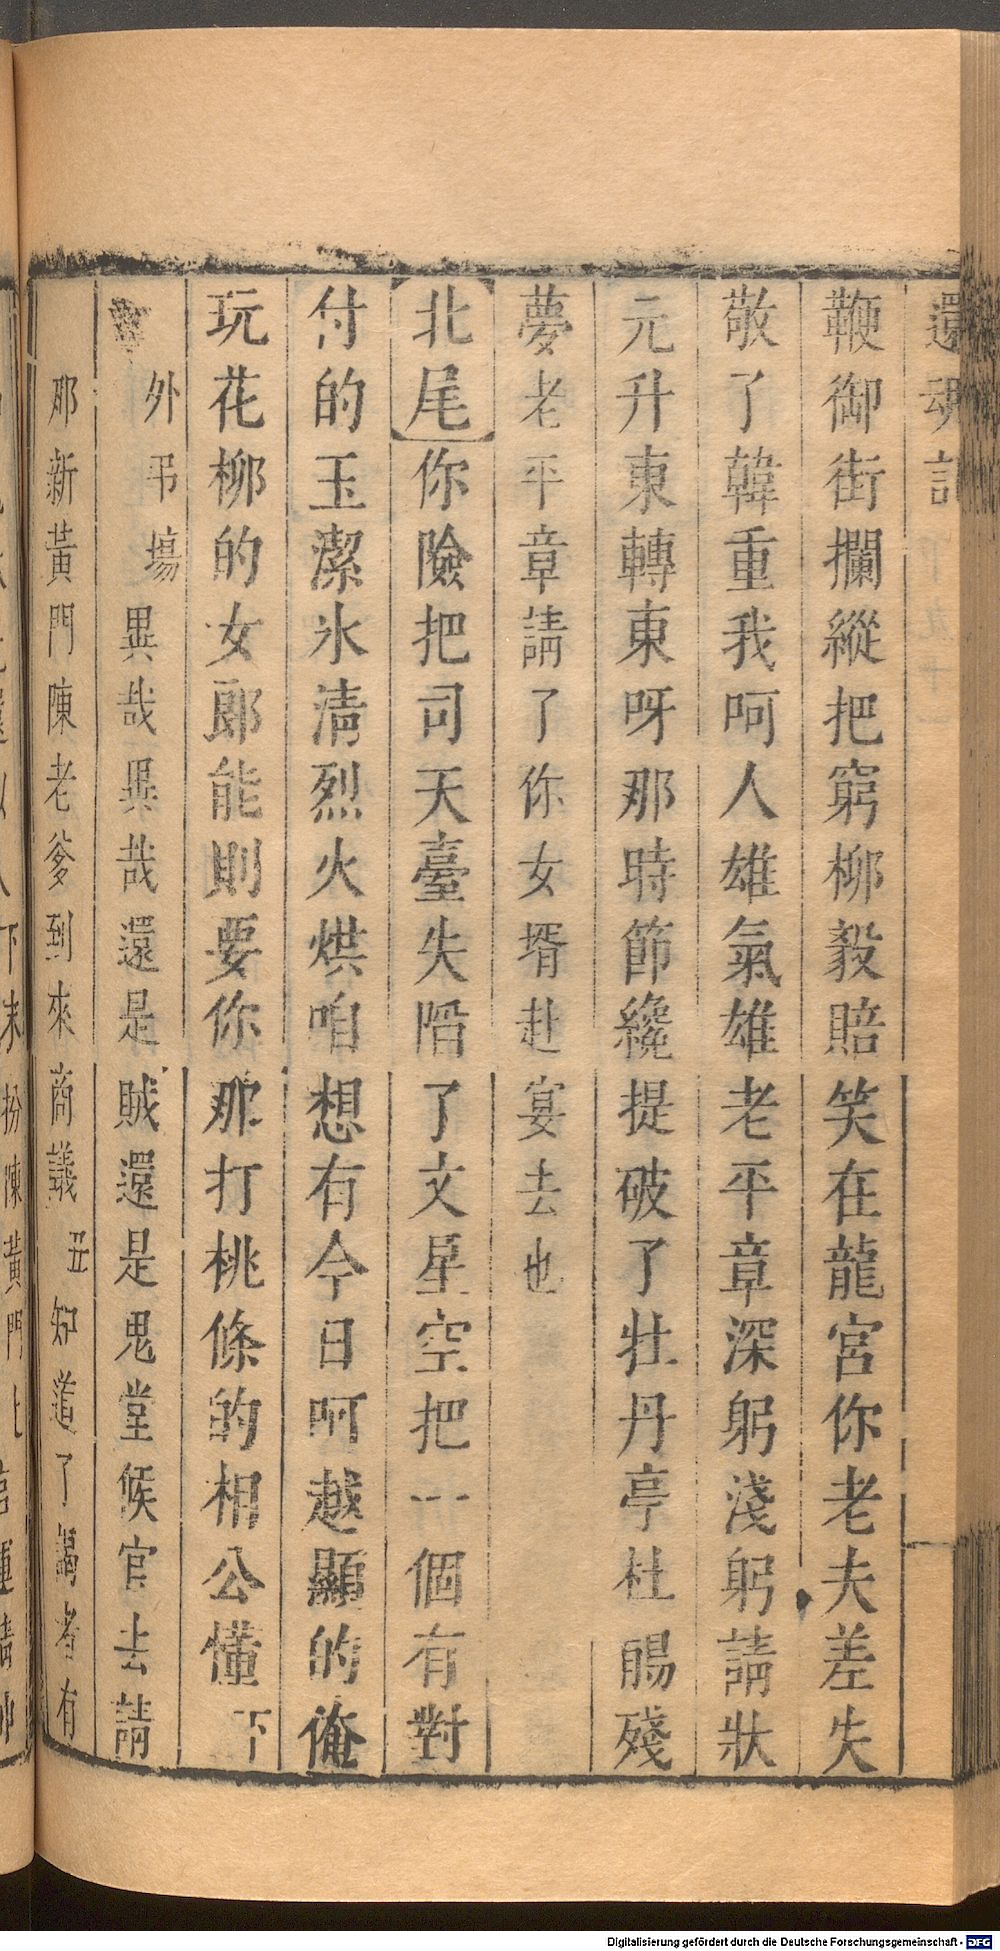 還魂記
鞭御街攔縱把窮柳毅賠笑在龍宮你老夫差失
敬了韓重我呵人雄氣雄老平章深躬淺躬請狀
元升東轉東呀那時節纔提破了牡丹亭杜鵑殘
夢老平章請了你女壻赴宴去也
北尾你險把司天臺失陷了文星空把一個有對
付的玉潔氷清烈火烘咱想有今日呵越顯的俺
玩花柳的女郎能則要你那打桃條的相公懂下
外弔塲異哉異哉還是賊還是鬼堂候官去請
那新黃門陳老爹到來商議丑知道了謁者有
下末扮陳黃門上
Digitalisierung gefördert durch die Deutsche Forschungsgemeinschaft - DFG